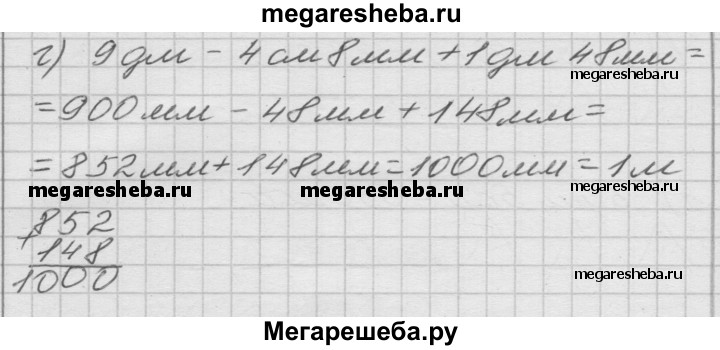 megaresheba.ru
г) 9 дм - 4 см 8 мм + 1 дм 48 мм =
megaresheba.ru
= 900 мм - 48 мм + 148 мм =
= 852 мм + 148 мм = 1000 мм = 1 м
megaresheba.ru megaresheba.ru megaresheba.ru
852
+ 148
1000
megaresheba.ru
Мегарешеба.ру